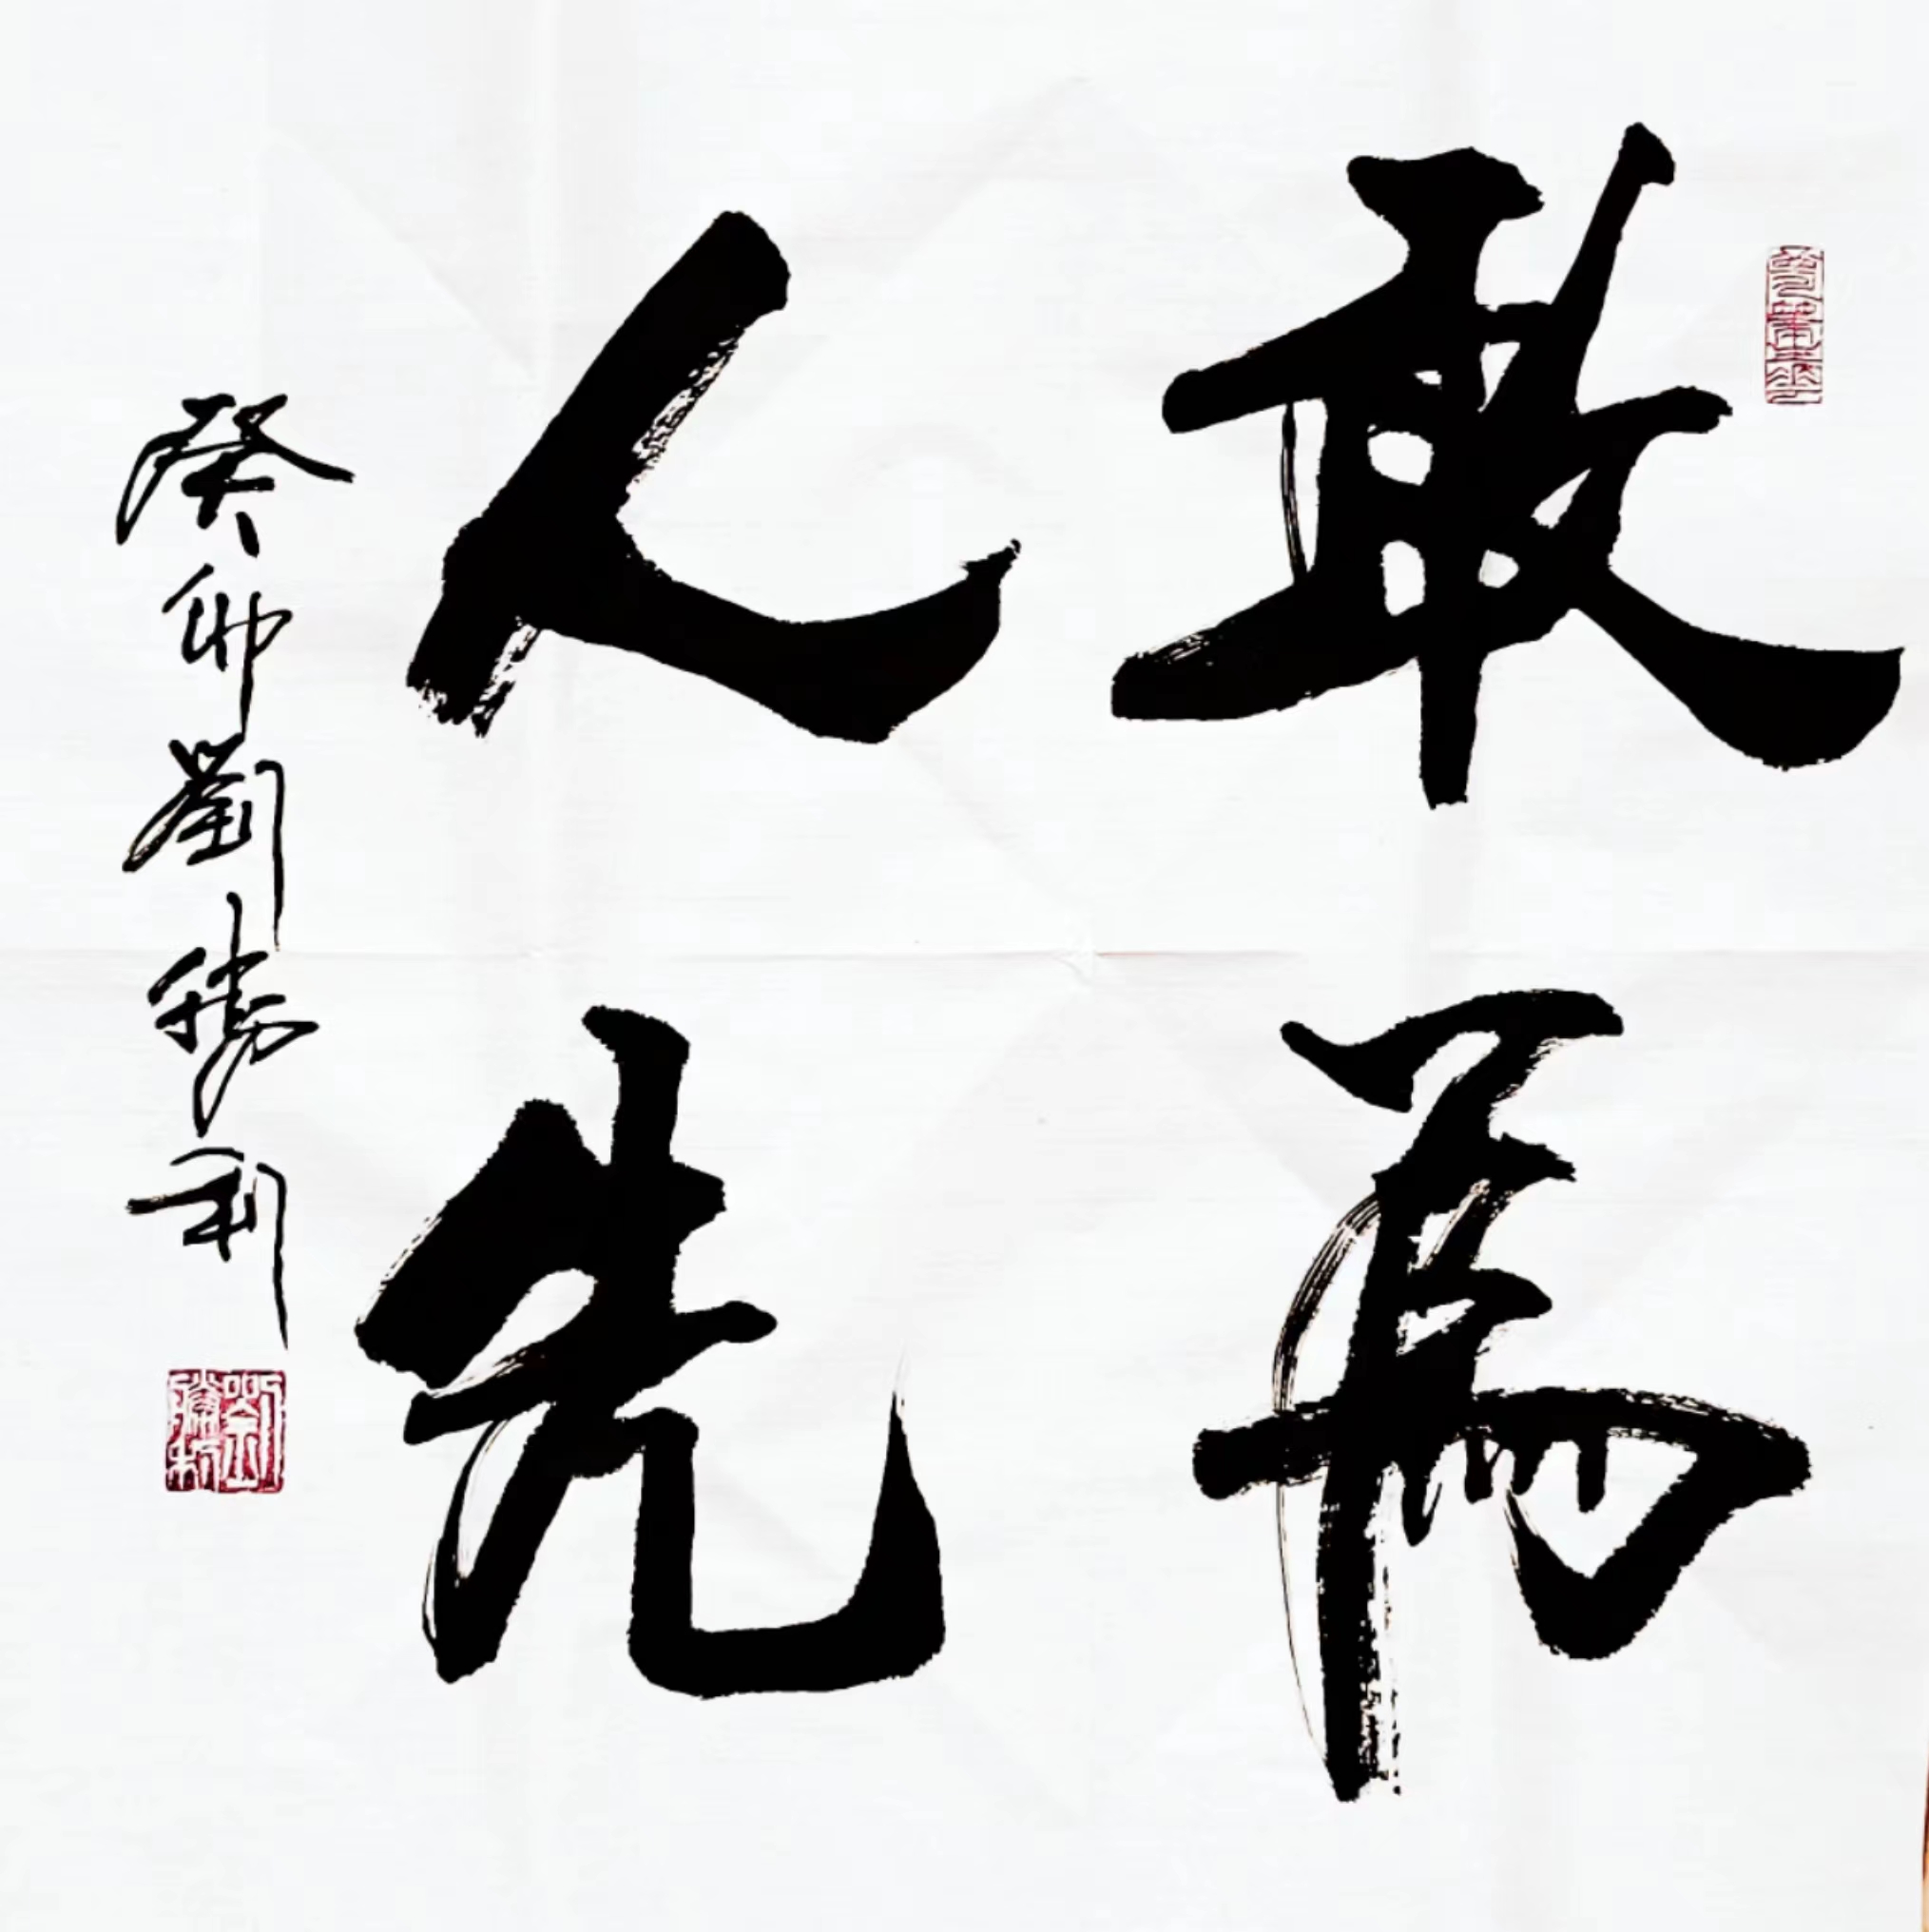 敢為
人先
癸卯劉勝利
劉勝利